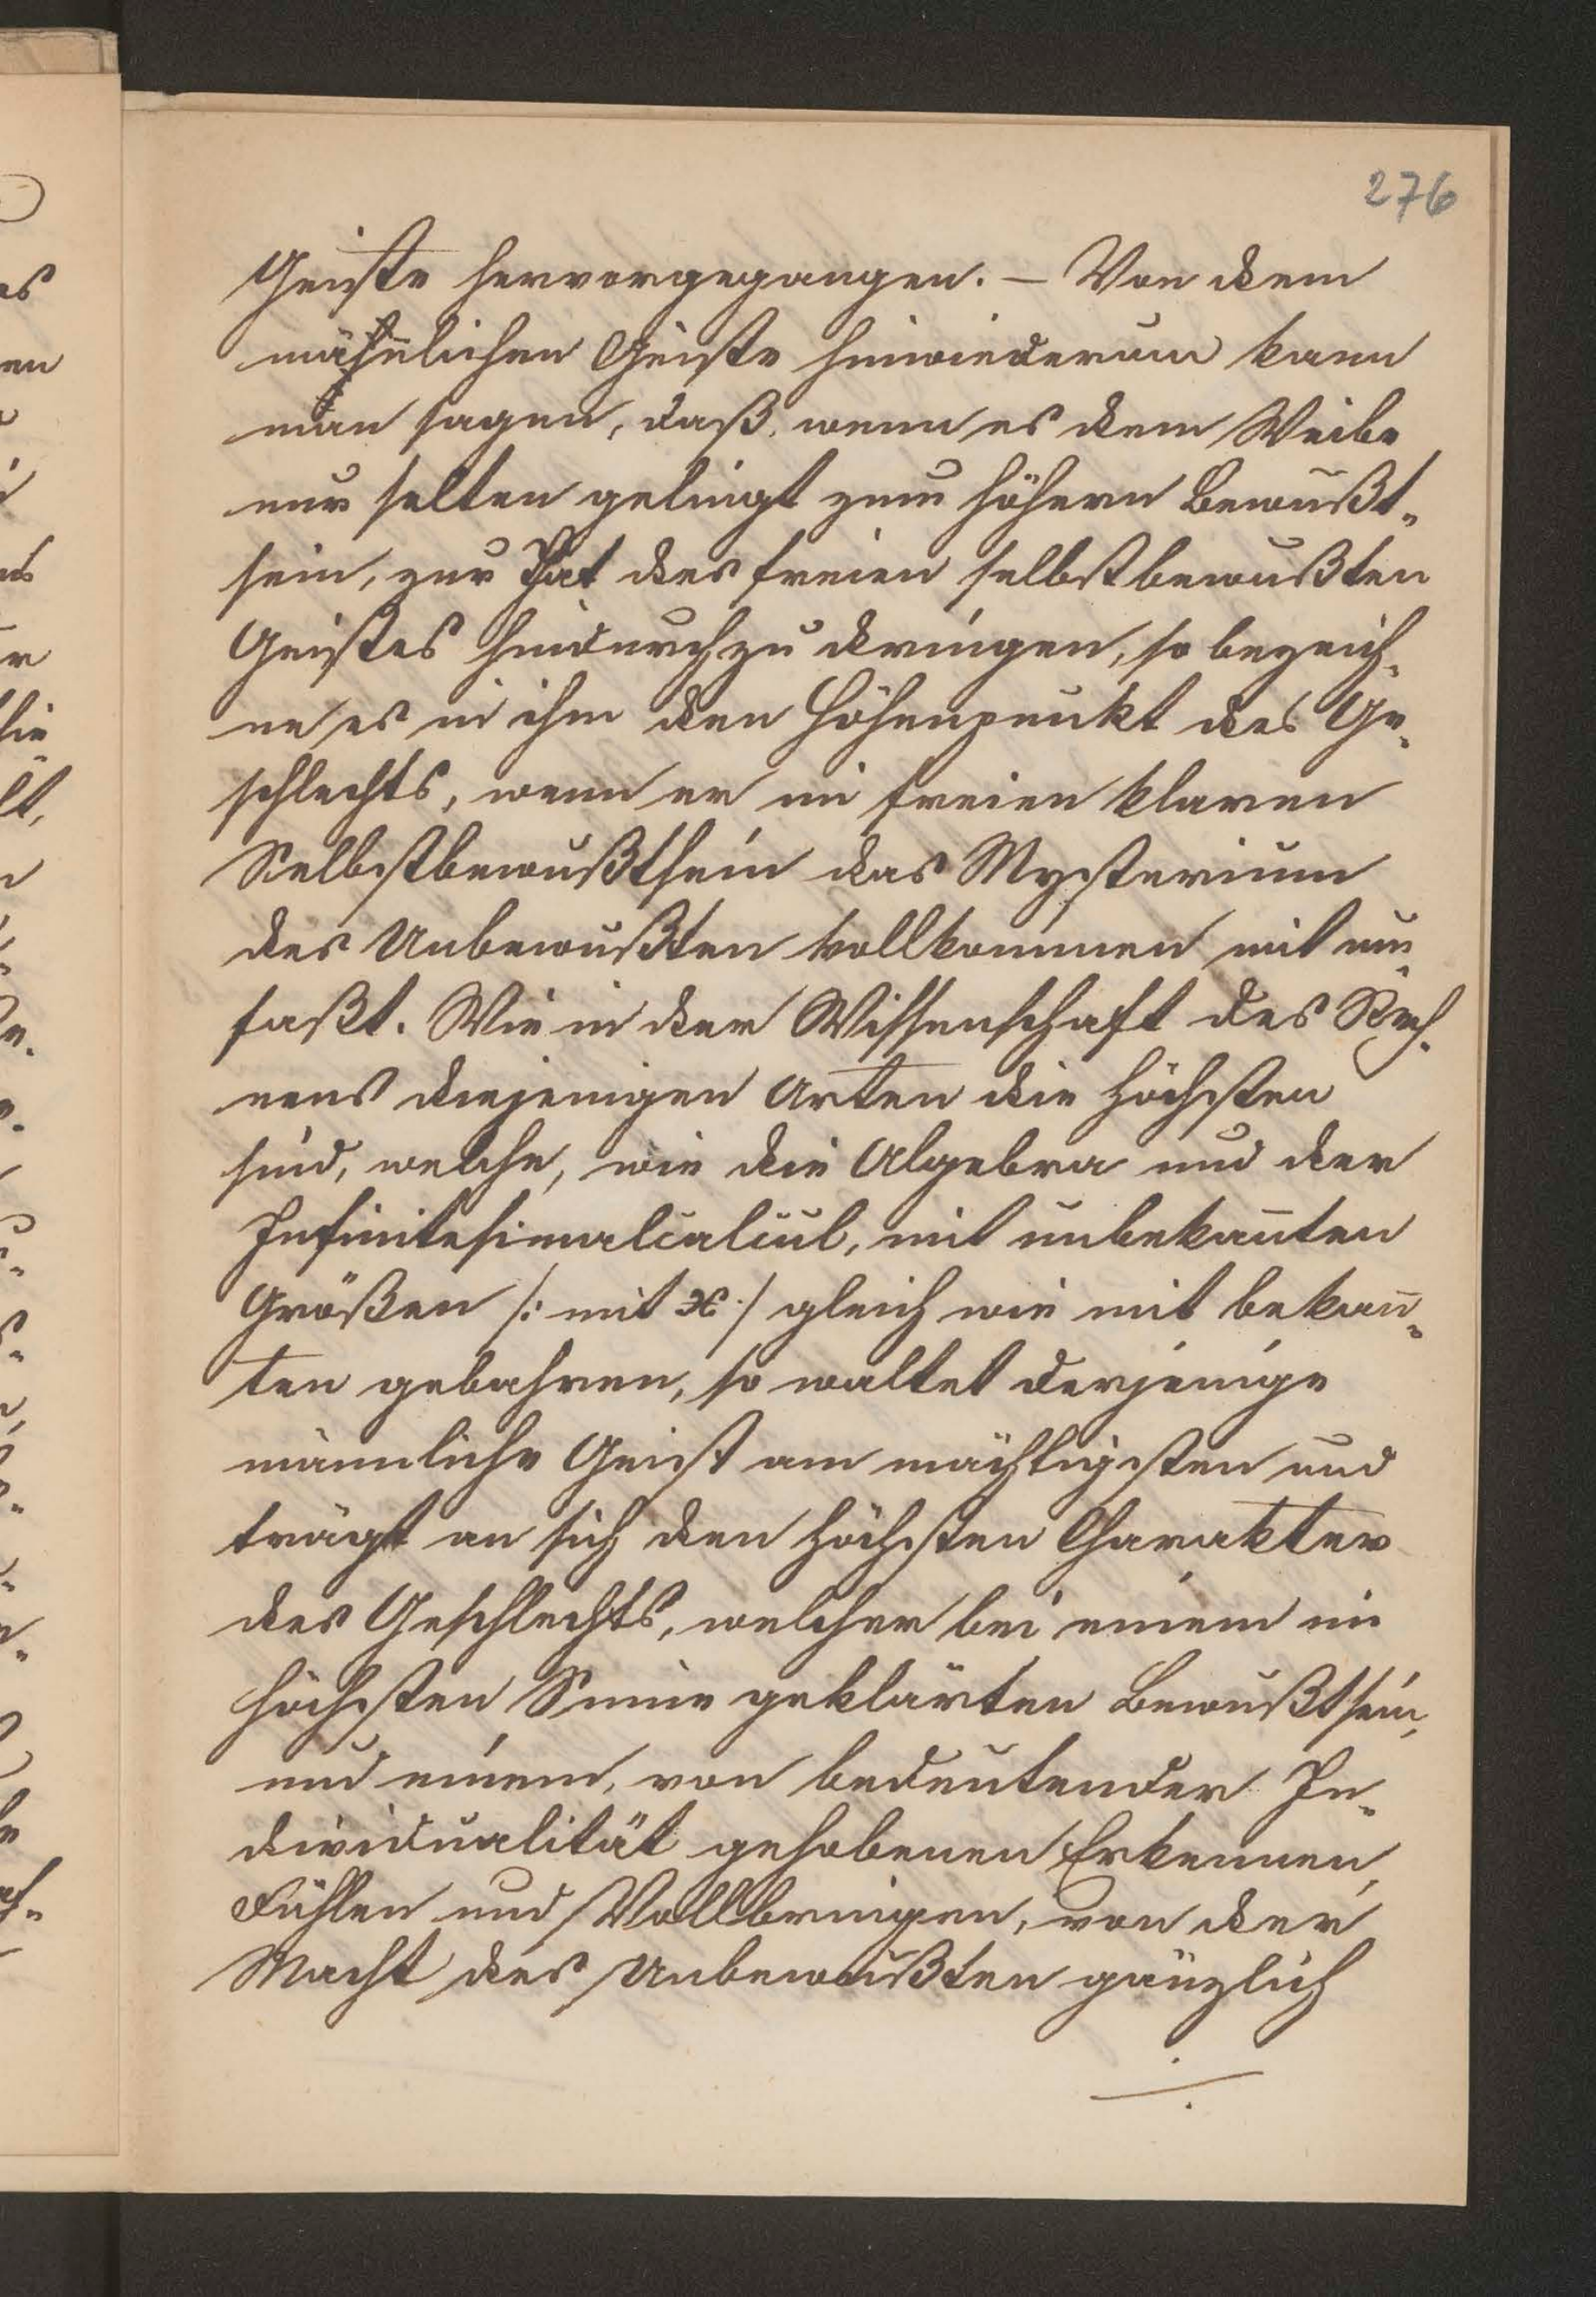 276
Geiste hervorgegangen. — Von dem
männlichen Geiste hinwiederum kann
man sagen, daß, wenn es dem Weibe
nur selten gelingt zum höhern Bewußt-
sein, zur That des freien selbstbewußten
Geistes hindurchzudringen, so bezeich-
ne es in ihm den Höhenpunkt des Ge-
schlechts, wenn er im freien klaren
Selbstbewußtsein das Mysterium
des Unbewußten vollkommen mit um-
faßt. Wie in der Wissenschaft des Rech-
nens diejenigen Arten die höchsten
sind, welche, wie die Algebra und der
Infinitesimalcalcül, mit unbekan̅ten
Größen /: mit x :/ gleich wie mit bekan̅-
ten gebahren, so waltet derjenige
männliche Geist am mächtigsten und
trägt an sich den höchsten Charakter
des Geschlechts, welcher bei einem im
höchsten Sinne geklärten Bewußtsein,
und einem, von bedeutender In-
dividualität gehobenen Erkennen,
Fühlen und Vollbringen, von der
Macht des Unbewußten gänzlich
./.